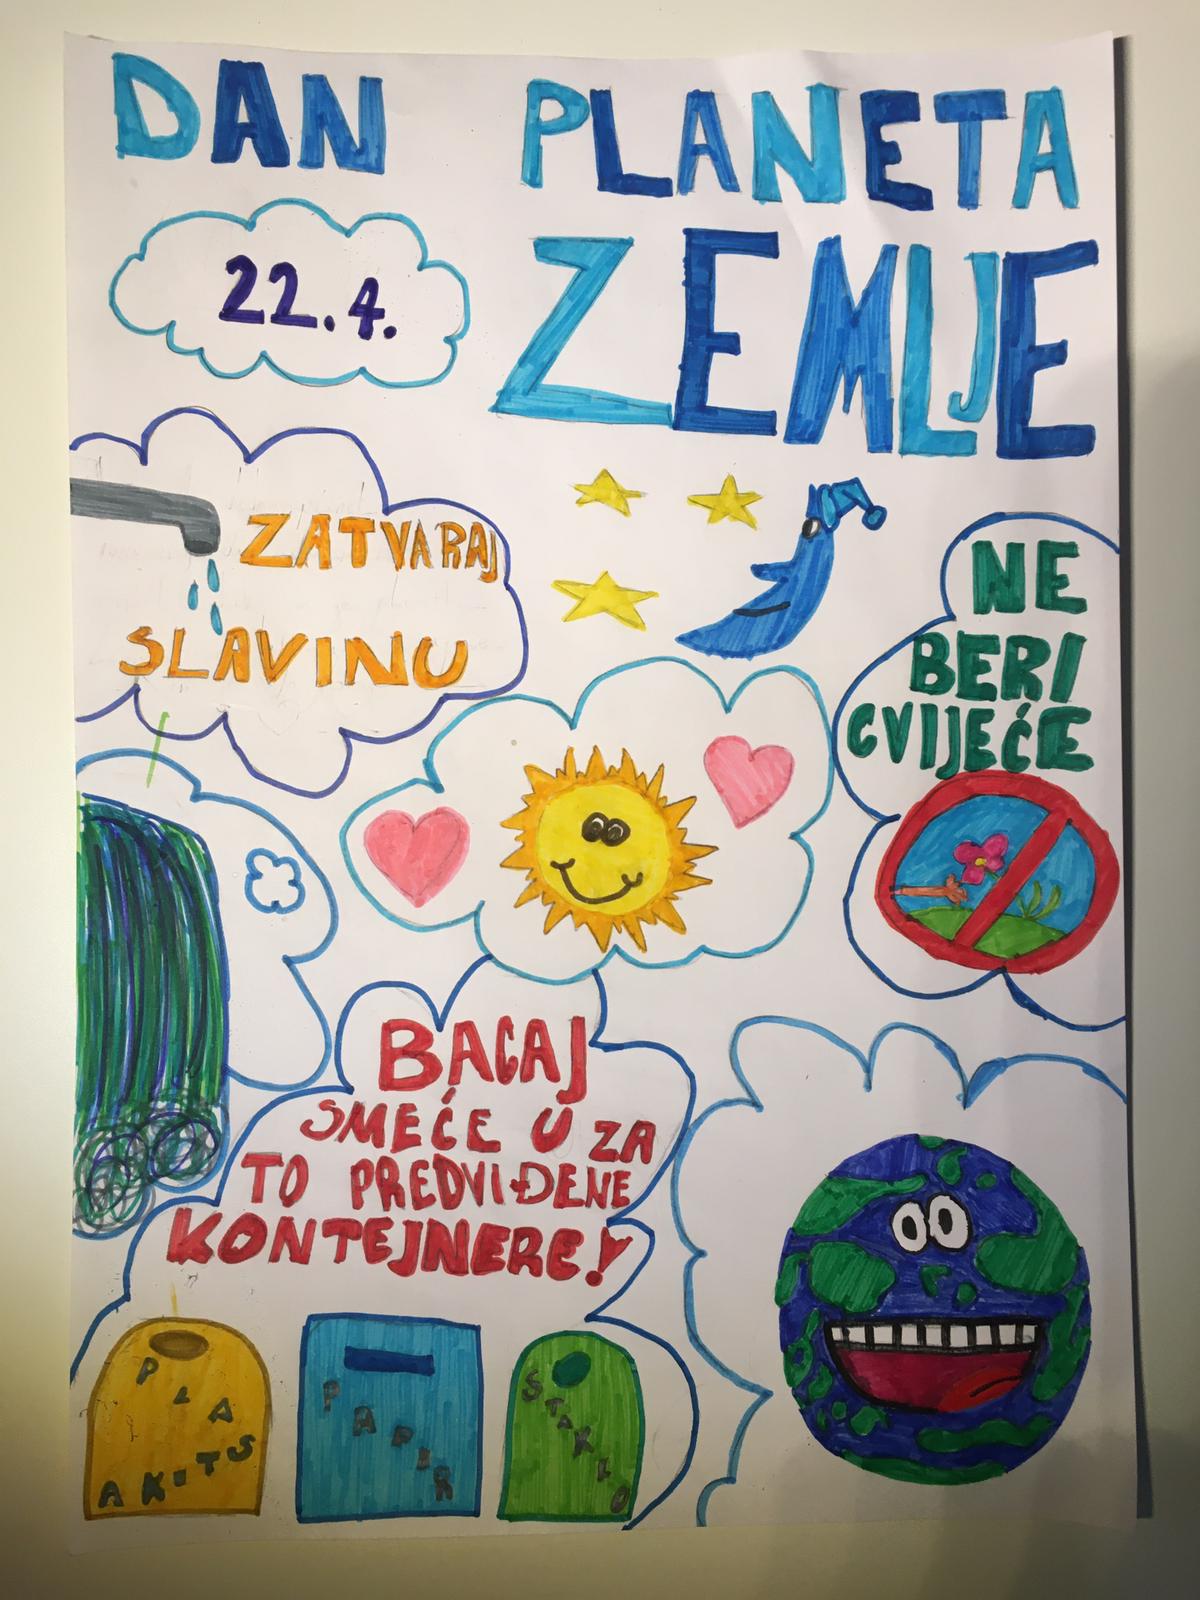 DAN PLANETA
ZEMLJE
22.4.
ZATVARAJ
SLAVINU
NE
BERI
CVIJEĆE
BACAJ
SMEĆE U ZA
TO PREDVIĐENE
KONTEJNERE!
PLASTIKA
PAPIR
STAKLO